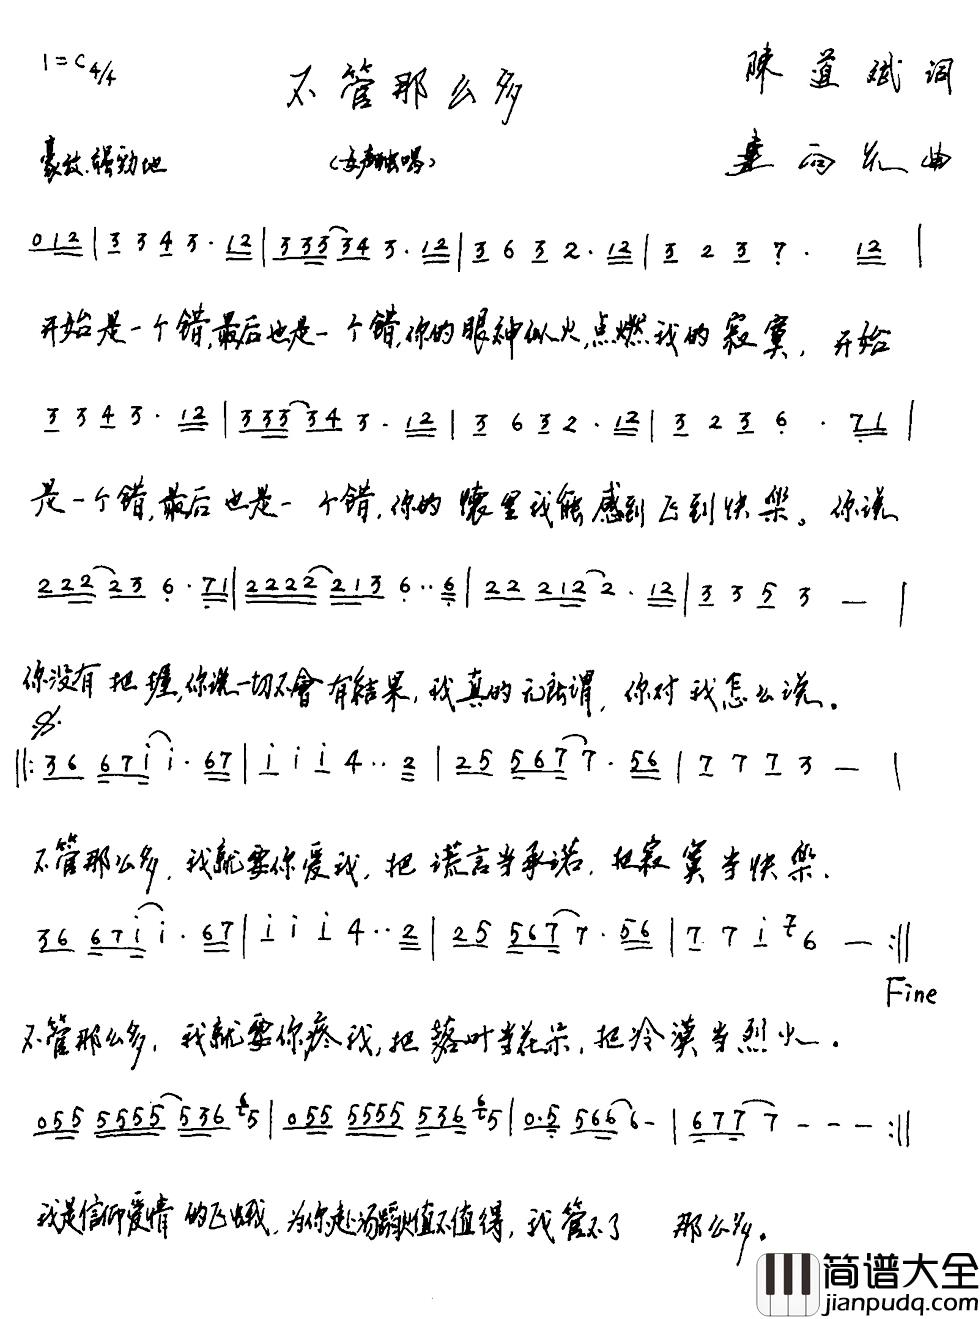 1=C 4/4
不管那么多
陳道斌 词
豪放.强劲地
(女声独唱)
曲
0 1 2 | 3 3 4 3 · 1 2 | 3 3 3 3 4 3 · 1 2 | 3 6 3 2 · 1 2 | 3 2 3 7 · 1 2 |
开始是一个错,最后也是一个错,你的眼神似火,点燃我的寂寞, 开始
3 3 4 3 · 1 2 | 3 3 3 3 4 3 · 1 2 | 3 6 3 2 · 1 2 | 3 2 3 6 · 7 1 |
是一个错,最后也是一个错,你的懷里我能感到飞到快樂。你说
2 2 2 2 3 6 · 7 1 | 2 2 2 2 2 1 3 6 ·· 6 | 2 2 2 1 2 2 · 1 2 | 3 3 5 3 — |
你没有把握,你说一切不會有结果,我真的无所谓,你对我怎么说。
‖: 3 6 6 7 i i · 6 7 | i i i 4 ·· 2 | 2 5 5 6 7 7 · 5 6 | 7 7 7 3 — |
不管那么多,我就要你爱我,把谎言当承诺,把寂寞当快樂.
3 6 6 7 i i · 6 7 | i i i 4 ·· 2 | 2 5 5 6 7 7 · 5 6 | 7 7 i 7 6 — :‖
Fine
不管那么多,我就要你疼我,把落叶当花朵,把冷漠当烈火.
0 5 5 5 5 5 5 5 3 6 6 5 | 0 5 5 5 5 5 5 5 3 6 6 5 | 0 · 5 5 6 6 6 - | 6 7 7 7 - - - :‖
我是信仰爱情的飞蛾,为你赴汤蹈火值不值得,我管不了 那么多。
简谱大全
jianpudq.com